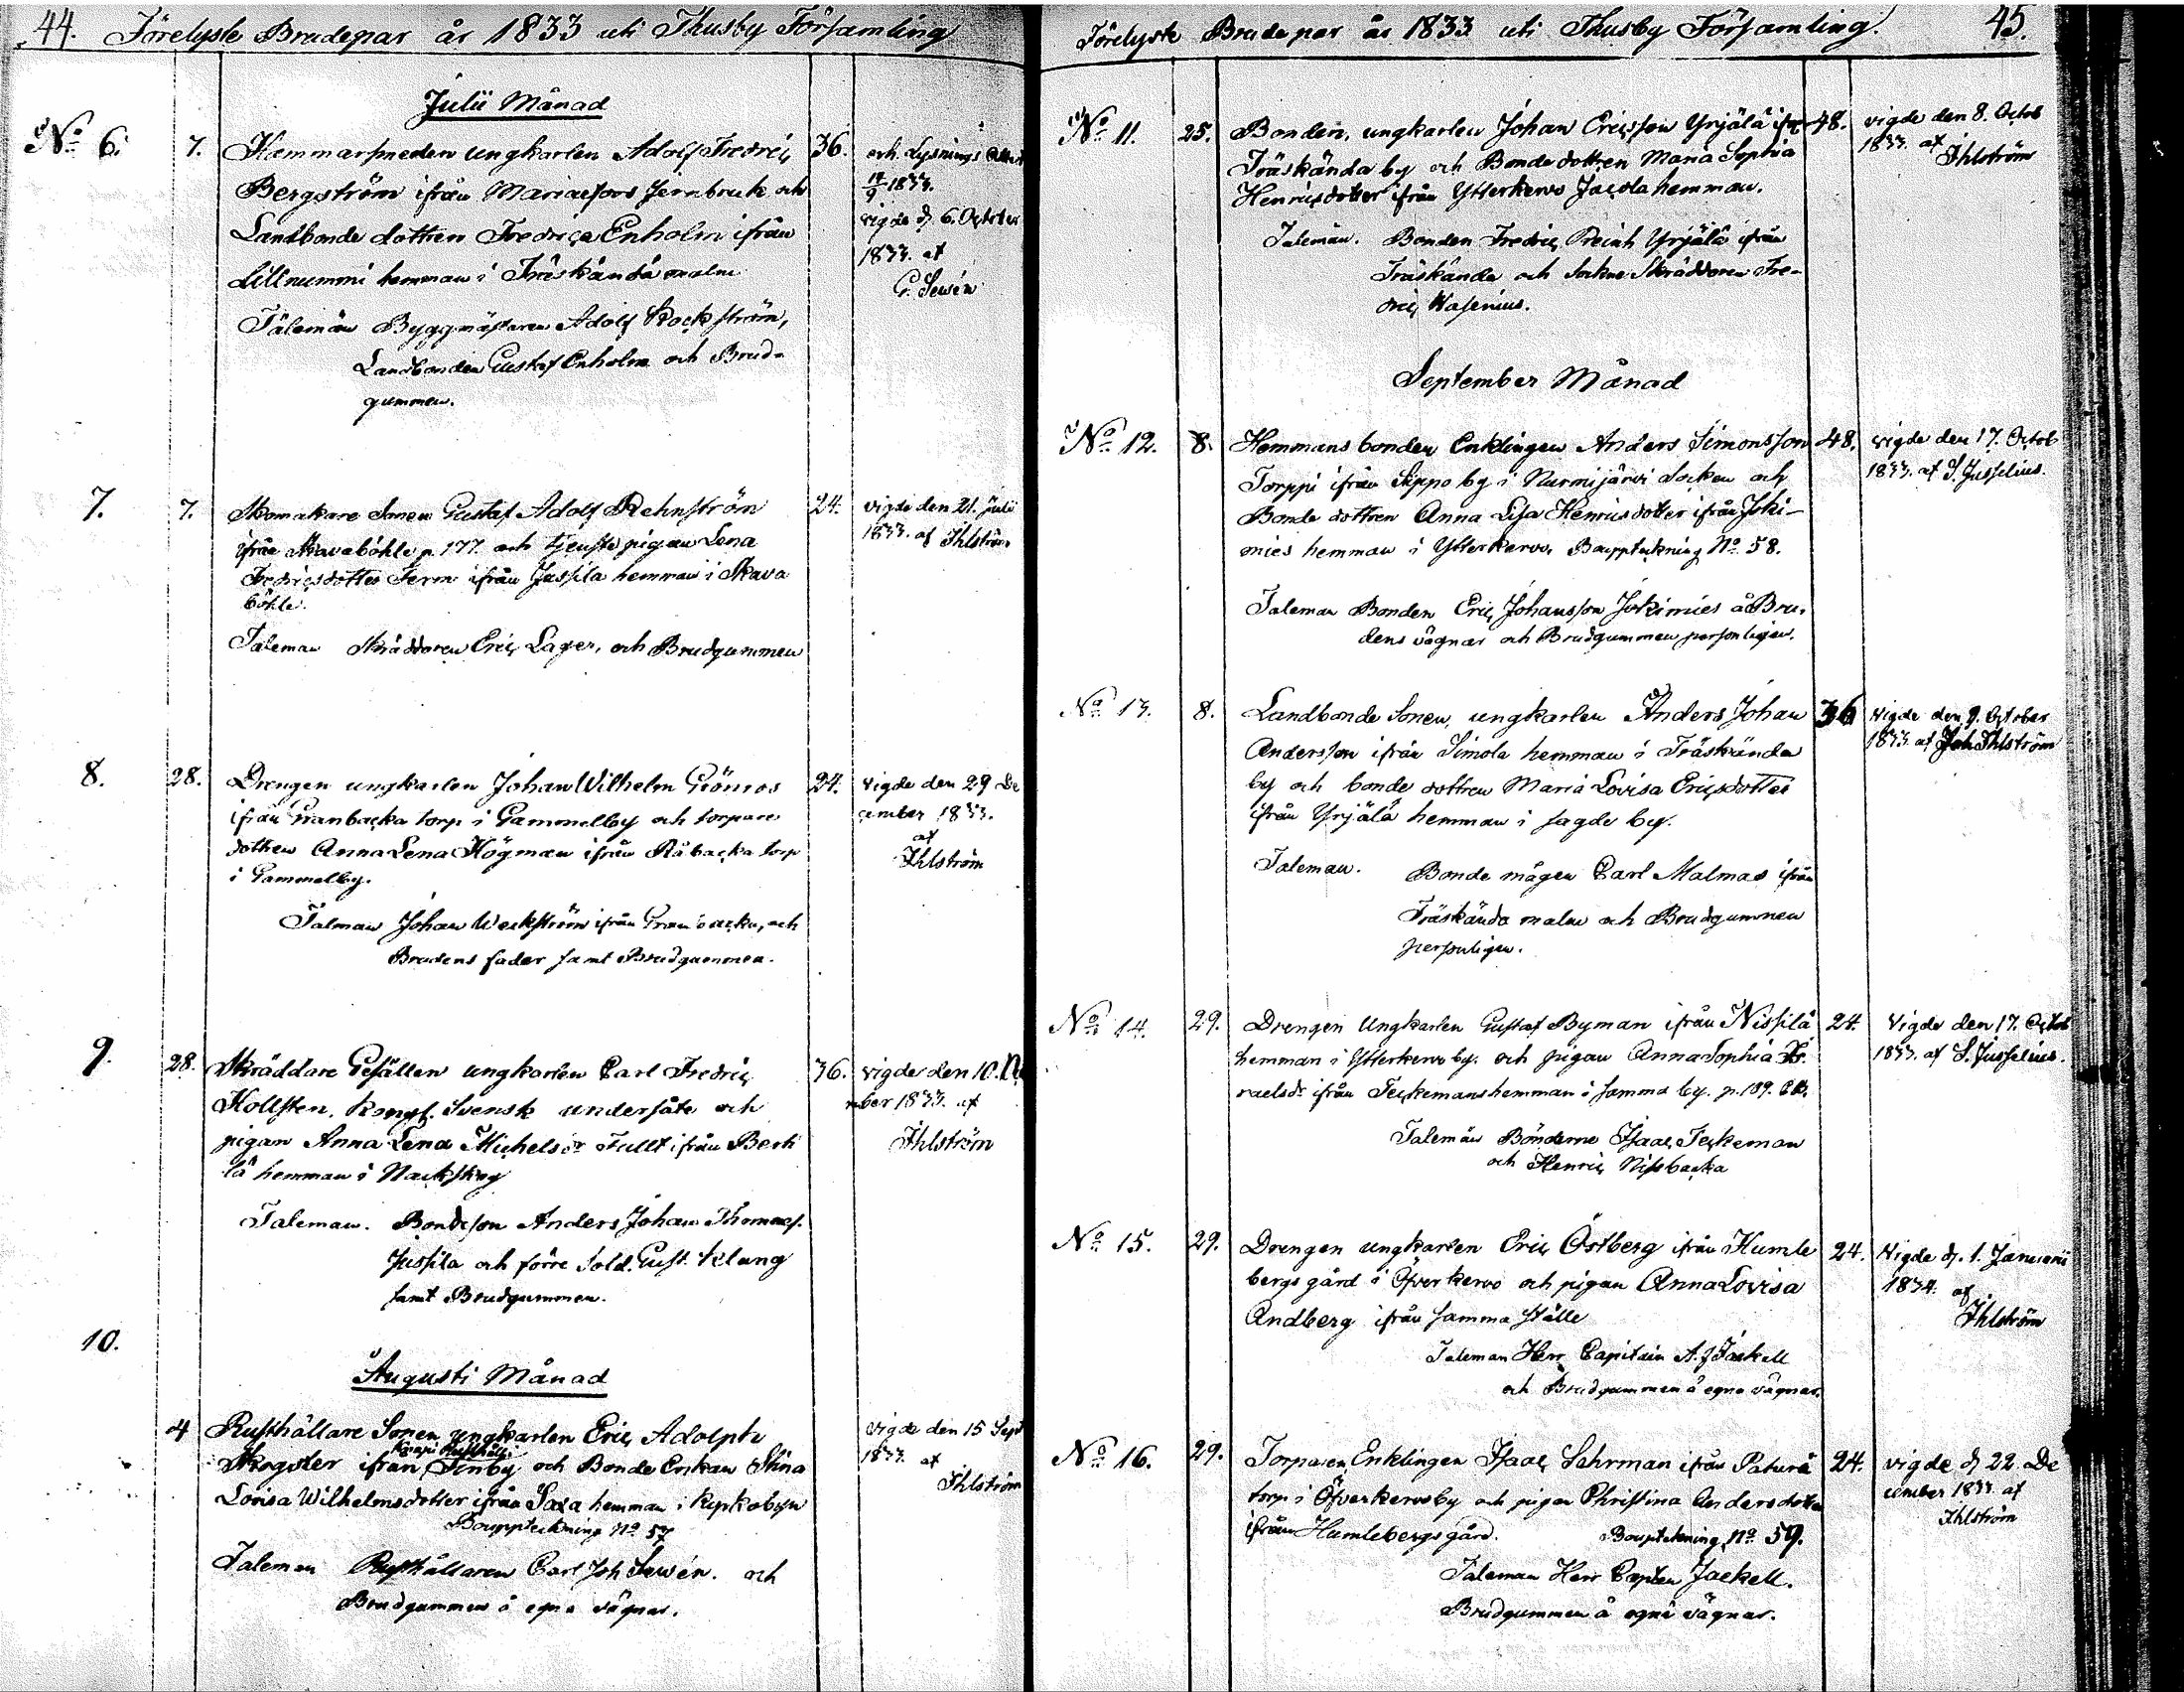 44. Förelyste Brudepar år 1833 uti Thusby Församling
Julii Månad
No 6. 7. Hammarsmeden ungkarlen Adolf Fredric 36. och Lysnings
Bergström ifrån Mariaefors Jernbruk och 1833.
Landbonde dottren Fredrica Enholm ifrån vigde d. 6. October
Lillnummi hemman i Träskända malm 1833. af
G. Sewén
Talemän Byggmästaren Adolf Stockström,
Landbonden Gustaf Enholm och Brud-
gummen.
7. 7. Skomakare Sonen Gustaf Adolf Rehnström 24. vigde den 21. Julii
ifrån Skavaböhle p. 177. och tjenste pigan Lena 1833. af Ihlström
Fredricsdotter Ferm ifrån Jussila hemman i Skava
böhle.
Taleman Skräddaren Eric Lager, och Brudgummen
8. 28. Drengen ungkarlen Johan Wilhelm Grönros 24. vigde den 29 De
ifrån Granbacka torp i Gammelby och torpare cember 1833.
dottren Anna Lena Högman ifrån Råbacka torp af
i Gammelby. Ihlström
Talman Johan Weckström ifrån Granbacka, och
Brudens fader samt Brudgummen.
9. 28. Skräddare Gesällen ungkarlen Carl Fredric 36. vigde den 10.
Hollsten, Kongl. Svensk undersåte och mber 1833. af
pigan Anna Lena Michelsdr Fullt ifrån Berti Ihlström
lä hemman i Nackskog
Taleman. Bondeson Anders Johan Thomaes.
Jussila och förre Sold. Gust. Klang
samt Brudgummen.
10.
Augusti Månad
4 Rusthållare Sonen ungkarlen Eric Adolph vigde den 15 Sept
Rusthåll
Skogster ifrån Finby och Bonde Enkan Stina 1833. af
Lovisa Wilhelmsdotter ifrån Saxa hemman i Kyrkobyn Ihlström
Bouppteckning No 57
Taleman Rusthållaren Carl Joh Sewén. och
Brudgummen å egna vägnar.
Förelyste Brudepar år 1833 uti Thusby Församling. 45.
No 11. 25. Bonden, ungkarlen Johan Ericsson Yrjälä ifr 48. vigde den 8. Octob
Träskända by och Bonde dottren Maria Sophia 1833. af Ihlström
Henricsdotter ifrån Ytterkervo Jacola hemman.
Talemän. Bonden Fredric Yrjälä ifrån
Träskända och Sockne Skräddaren Fre-
dric Wasenius.
September Månad
No 12. 8. Hemmans bonden Enklingen Anders Simonsson 48. vigde den 17. Octob
Torppi ifrån Seppo by i Nurmijärvi Socken och 1833. af S. Jusselius.
Bonde dottren Anna Lisa Henricsdotter ifrån Joki-
mies hemman i Ytterkervo. Bouppteckning No 58.
Taleman Bonden Eric Johansson Jokimies å Bru-
dens vägnar och Brudgummen personligen.
No 13. 8. Landbonde Sonen, ungkarlen Anders Johan 36 vigde den 9. October
Andersson ifrån Simola hemman i Träskända 1833. af Joh Ihlström
by och bonde dottren Maria Lovisa Ericsdotter
ifrån Yrjälä hemman i sagde by.
Taleman. Bonde mågen Carl Malmas ifrån
Träskända malm och Brudgummen
personligen.
No 14. 29. Drengen Ungkarlen Gustaf Byman ifrån Nissilä 24. Vigde den 17. Octob
hemman i Ytterkervo by. och pigan Anna Sophia Is 1833. af S. Jusselius.
raelsdr ifrån Teckemans hemman i samma by. p. 189.
Talemän Bönderne Isaac Teckeman
och Henric Nissbacka
No 15. 29. Drengen ungkarlen Eric Östberg ifrån Humle 24. Vigde d. 1. Januarii
bergs gård i Öfverkervo och pigan Anna Lovisa 1834. af
Andberg ifrån samma ställe Ihlström
Taleman Herr Capitain A. J Jackell
och Brudgummen å egna vägnar.
No 16. 29. Torparen Enklingen Isaac Sahrman ifrån Paturi 24. vigde d. 22. De
torp i Öfverkervoby och pigan Christina Andersdotter cember 1833. af
ifrån Humlebergs gård. Bouppteckning No 59. Ihlström
Taleman Herr Capten Jackell.
Brudgummen å egna vägnar.